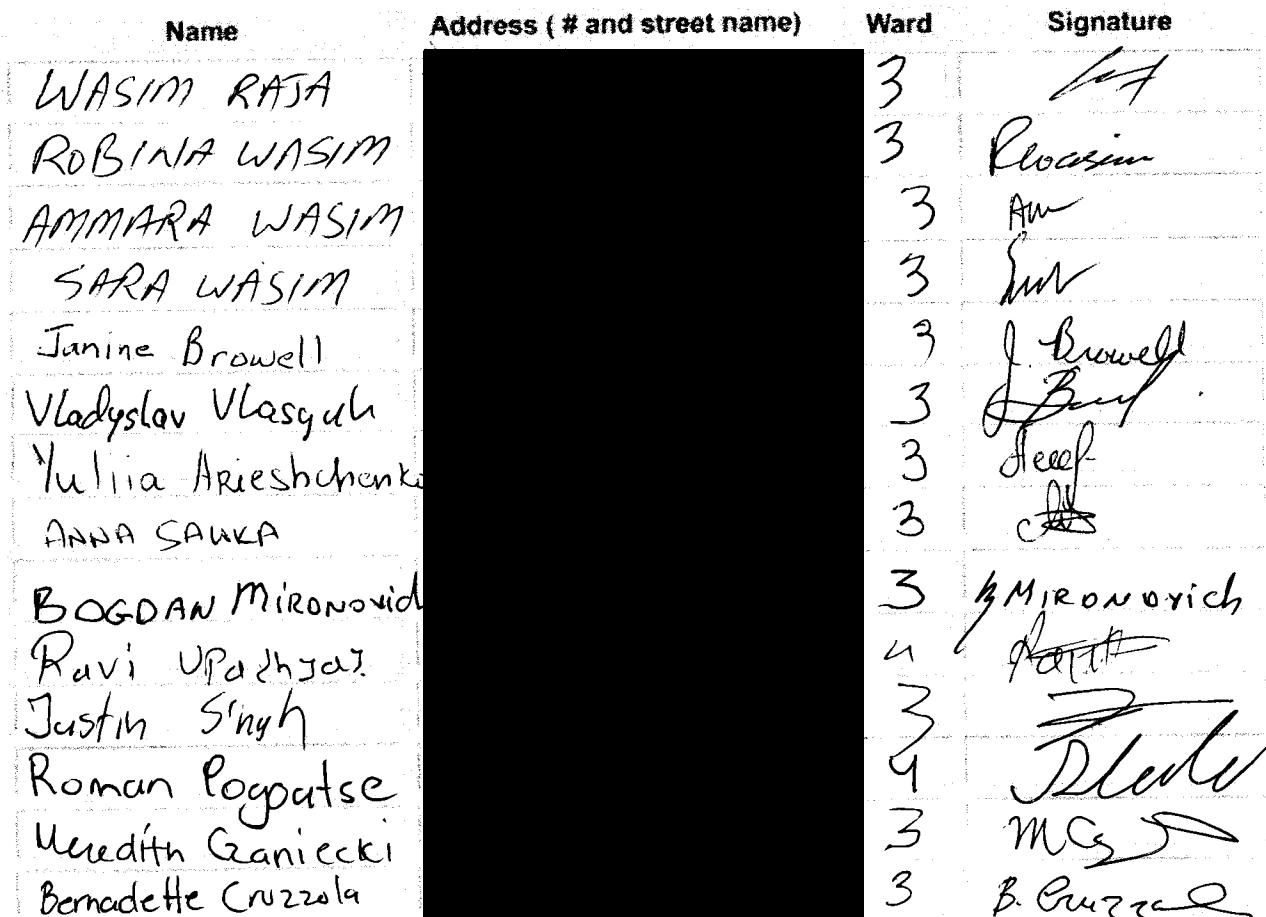 Name Address ( # and street name) Ward Signature
WASIM RAJA 3
ROBINA WASIM 3 Rwasim
AMMARA WASIM 3 Am
SARA WASIM 3
Janine Browell 3 J. Browell
Vladyslav Vlasyuk 3
Yuliia Arieshchenko 3
ANNA SAUKA 3
BOGDAN MIRONOVICH 3 B MIRONOVICH
Ravi UPadhyay 4
Justin Singh 3
Roman Pogoutse 4
Meredith Czaniecki 3 MCz
Bernadette Cruzzola 3 B. Cruzzola